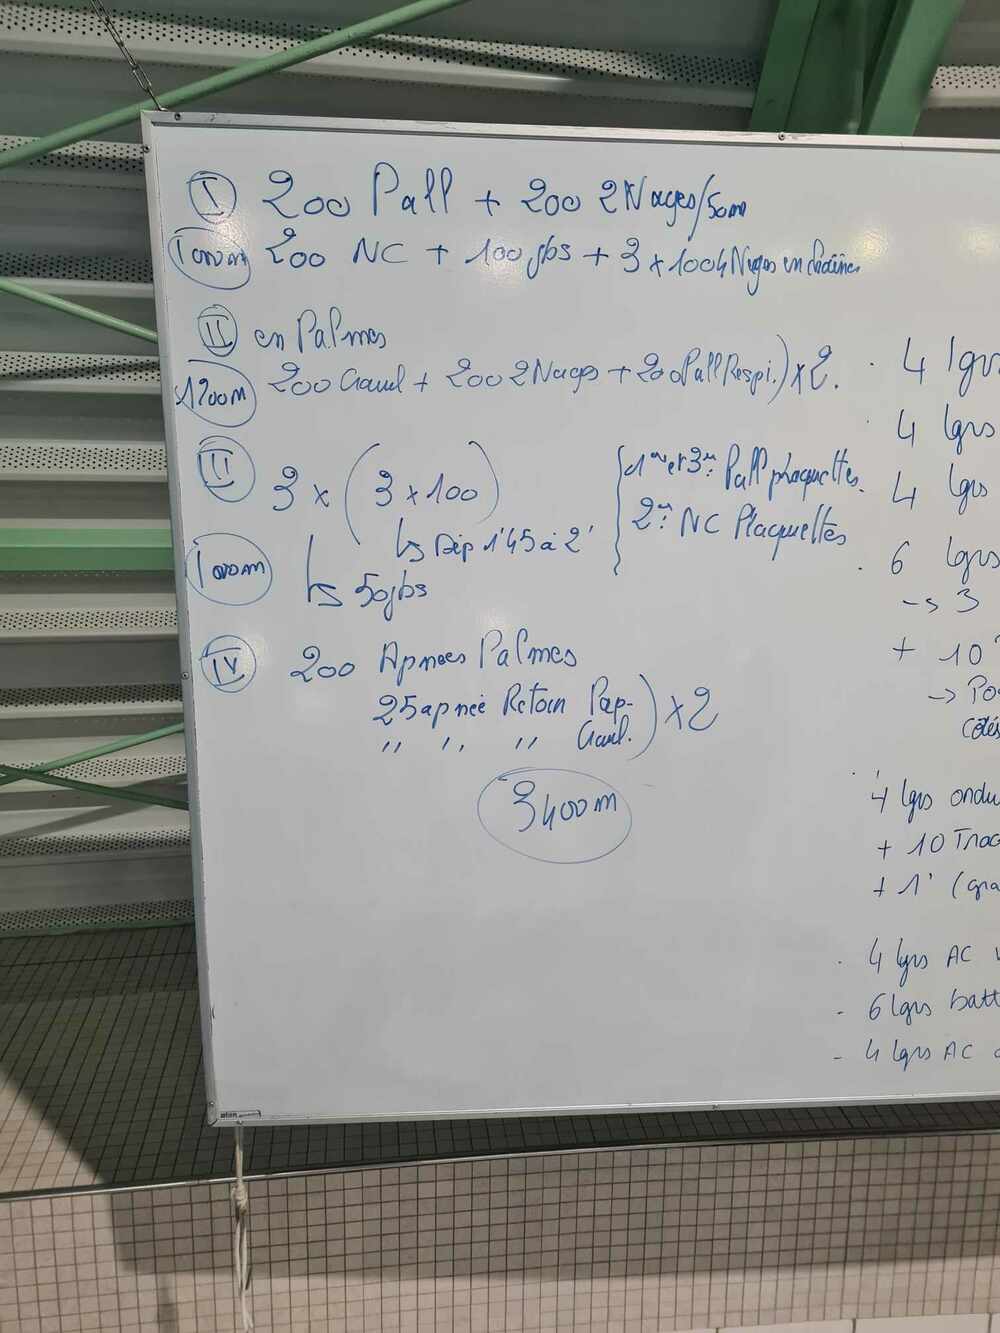 I 200 Pall + 200 2Nages/50m
1000m 200 NC + 100 jbs + 3 x 100 4 Nages en
II en Palmes
1200m 200 Gaud + 200 2Nages + 200 Pall Respi.) x 2.
III 3 x (3 x 100)
↳ Dép 1'45 à 2'
1000m ↳ 50 jbs
{1ère et 3è: Pall plaquettes.
2è: NC Plaquettes
IV 200 Apnées Palmes
25 apnée Retour Pap.
,, ,, ,, Gaud.) x 2
3400m
· 4 lgrs
4 lgrs
4 lgrs
· 6 lgrs
-> 3
+ 10
-> Po
côtés
· 4 lgrs ondu
+ 10 Trac
+ 1' (gra
· 4 lgrs AC
- 6 lgrs batt
- 4 lgrs AC